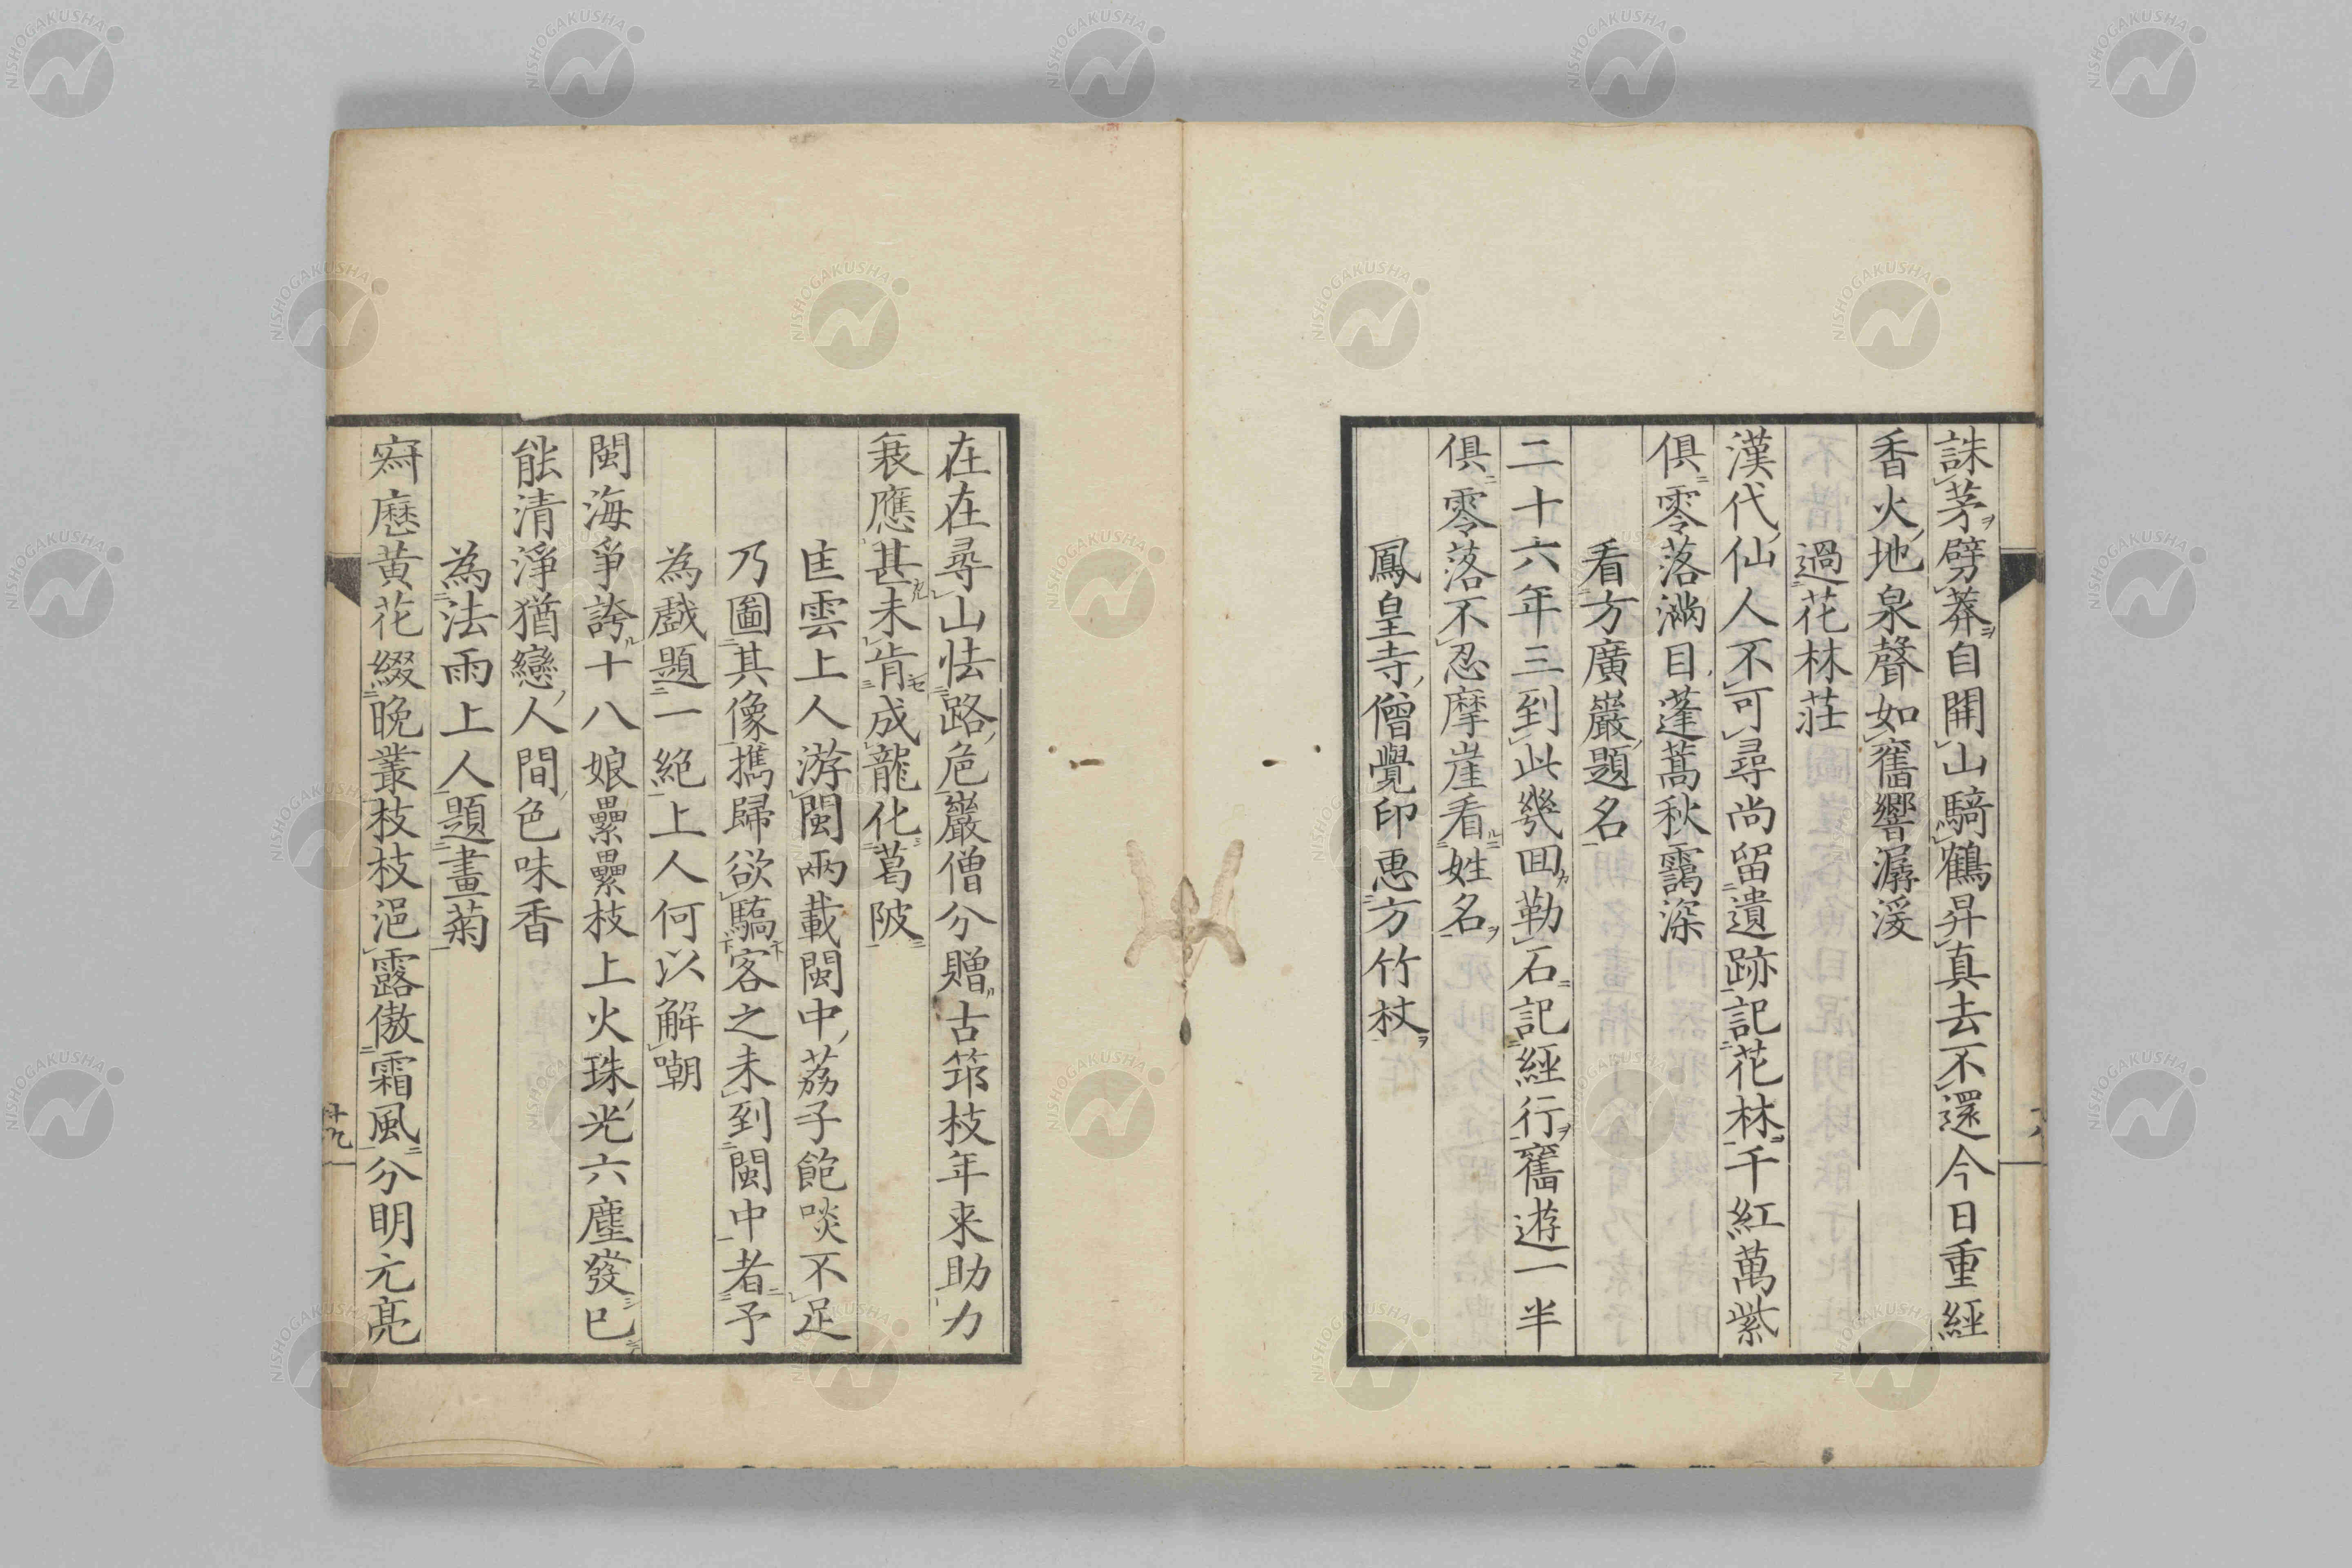 誅茅劈莽自開山騎鶴昇真去不還今日重經
香火地泉聲如舊響潺湲
過花林莊
漢代仙人不可尋尚留遺跡記花林千紅萬紫
俱零落滿目蓬蒿秋靄深
看方廣巖題名
二十六年三到此幾回勒石記經行舊遊一半
俱零落不忍摩崖看姓名
鳳皇寺僧覺印惠方竹杖
在在尋山怯路危巖僧分贈古筇枝年来助力
衰應甚未肯成龍化葛陂
匡雲上人游閩兩載閩中荔子飽啖不足
乃圖其像攜歸欲驕客之未到閩中者予
為戲題一絕上人何以解嘲
閩海爭誇十八娘纍纍枝上火珠光六塵發已
能清淨猶戀人間色味香
為法雨上人題畫菊
黄花綴晚叢枝枝浥露傲霜風分明元亮
十九
NISHOGAKUSHA